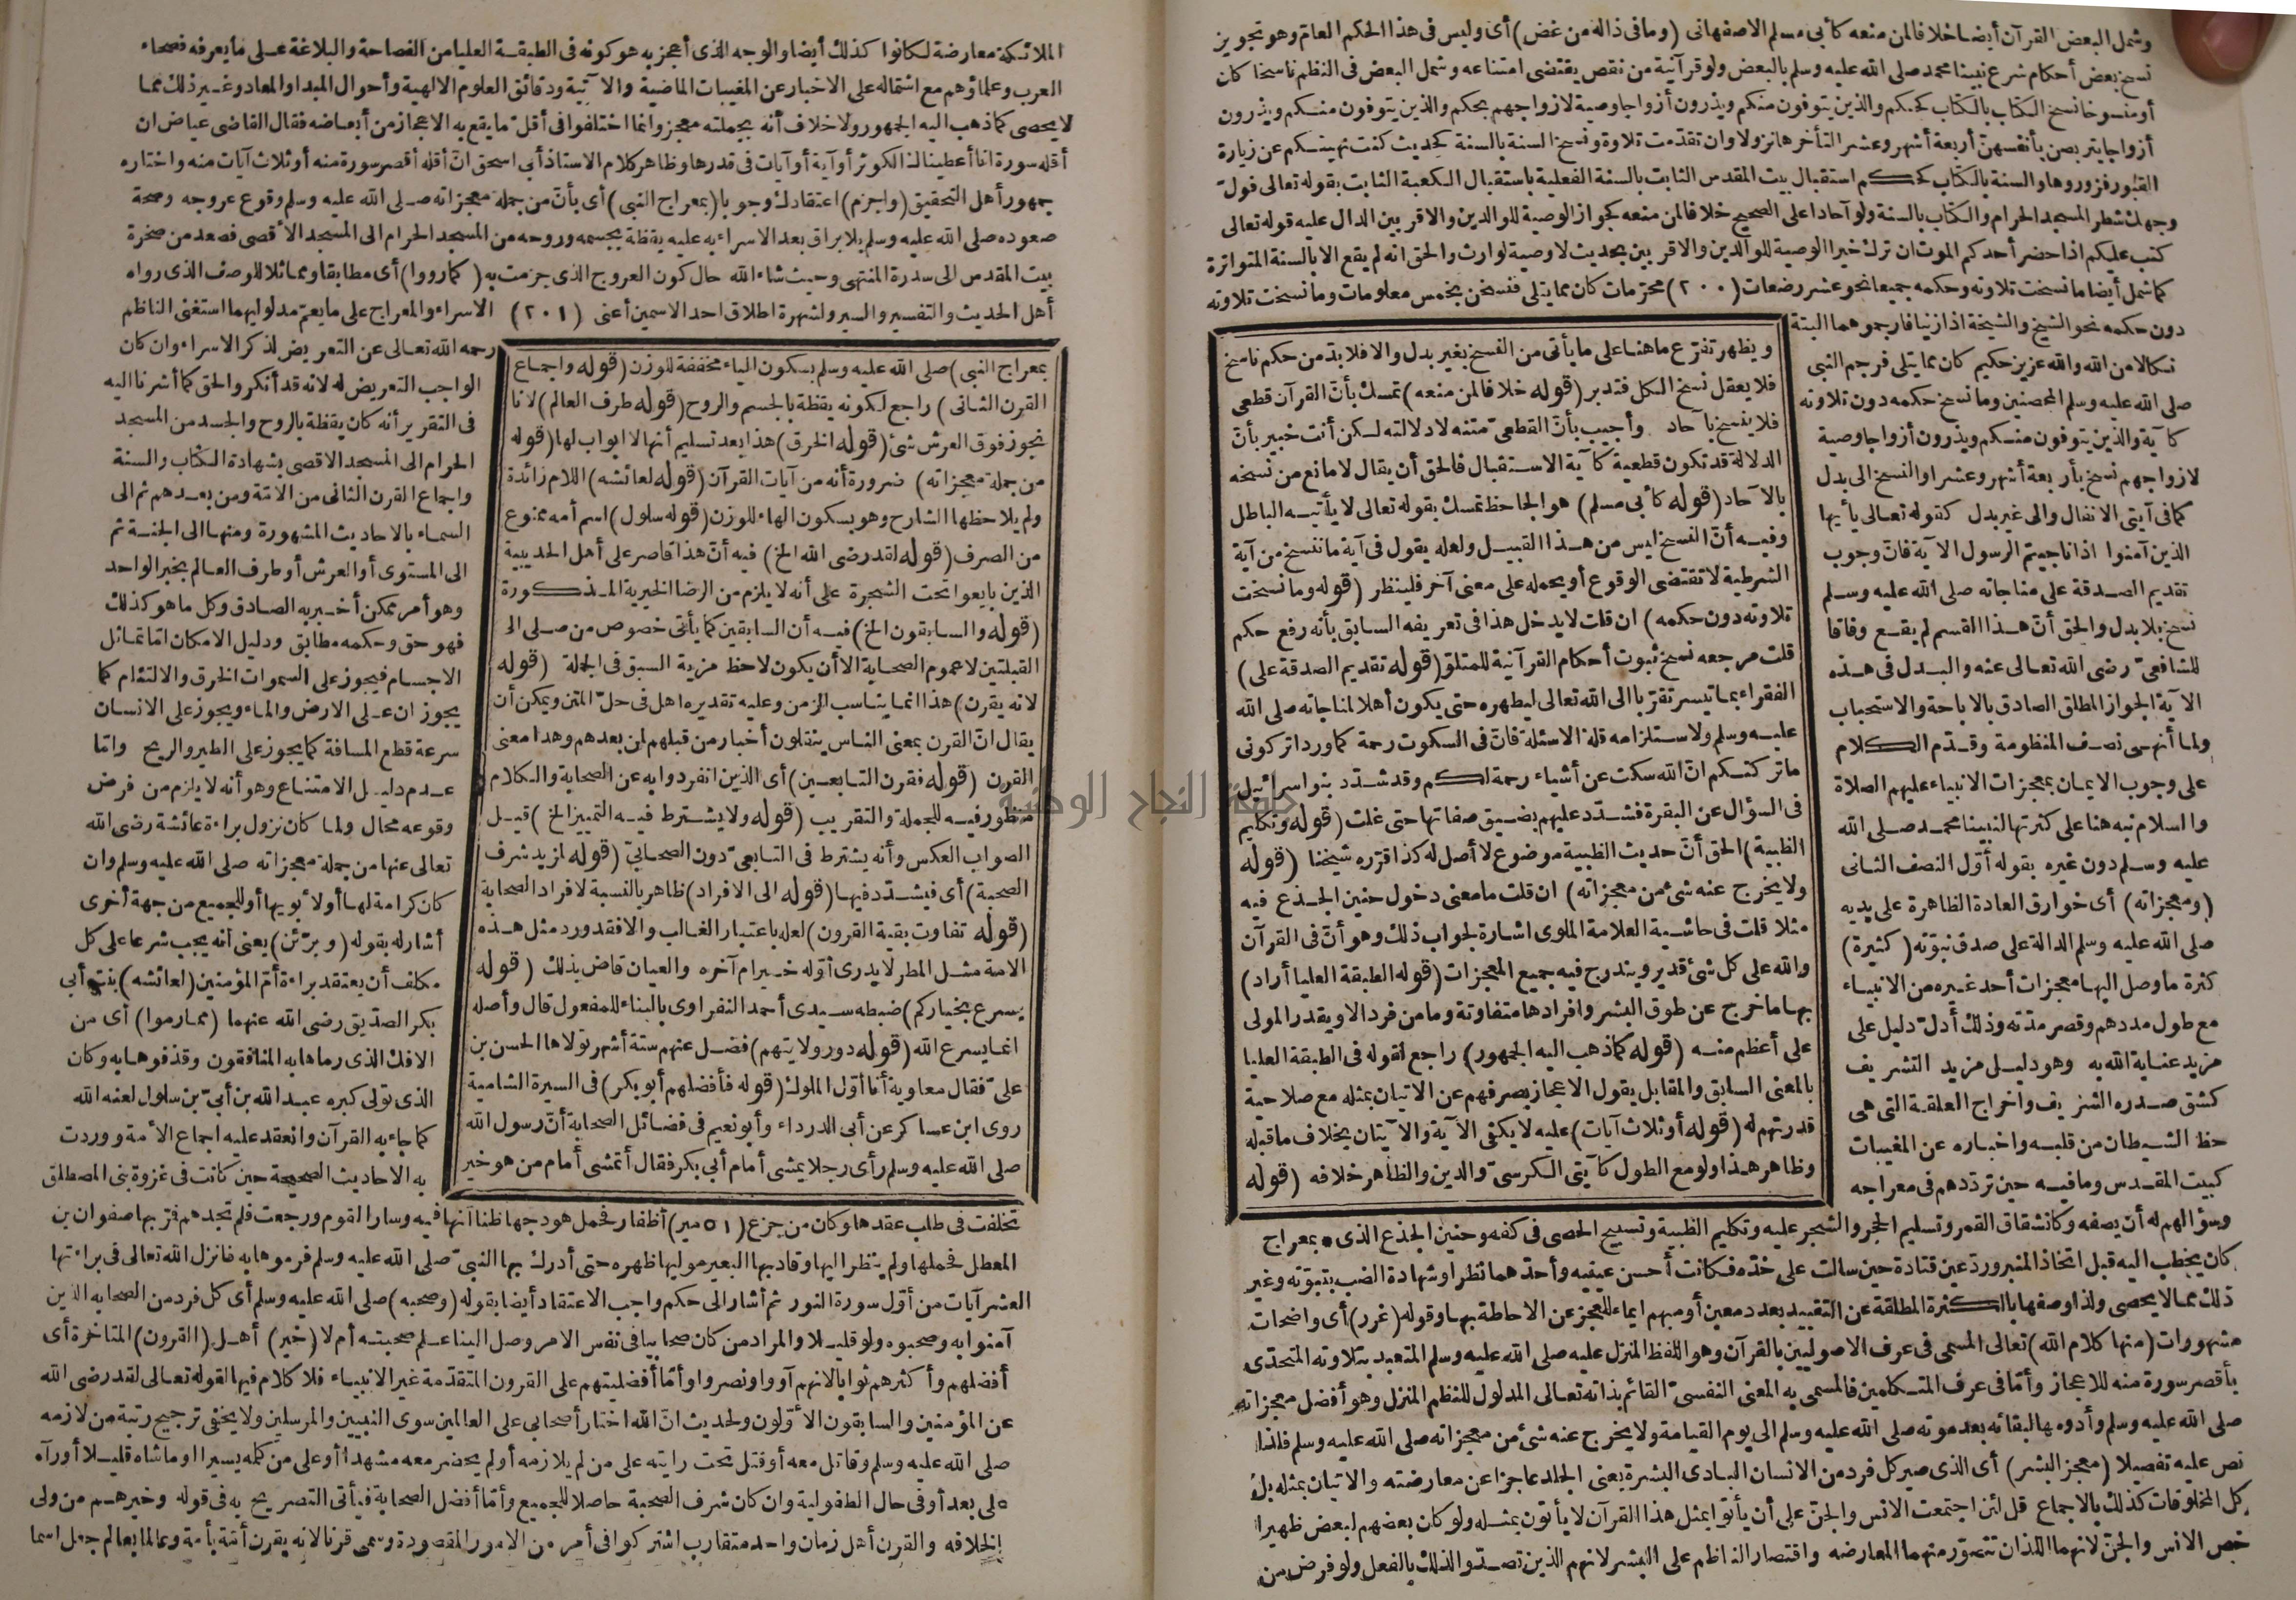 وشمل البعض القرآن أيضا خلافا لمن منعه كأبي مسلم الاصفهانى (وما فى ذاله من غض) أى وليس فى هذا الحكم العام وهو تجويز
نسخ بعض أحكام شرع نبينا محمد صلى الله عليه وسلم بالبعض ولو قرآنية من نقص يقتضى امتناعه وشمل البعض فى النظم ناسخا كان
أو منسوخا نسخ الكتاب بالكتاب كحكم والذين يتوفون منكم ويذرون أزواجا وصية لازواجهم بحكم والذين يتوفون منكم ويذرون
أزواجا يتربصن بأنفسهن أربعة أشهر وعشر التأخرها نزولا وان تقدمت تلاوة ونسخ السنة بالسنة كحديث كنت نهيتكم عن زيارة
القبور فزوروها والسنة بالكتاب كحكم استقبال بيت المقدس الثابت بالسنة الفعلية باستقبال الكعبة الثابت بقوله تعالى فول
وجهك شطر المسجد الحرام والكتاب بالسنة ولو آحادا على الصحيح خلافا لمن منعه كجواز الوصية للوالدين والاقربين الدال عليه قوله تعالى
كتب عليكم اذا حضر أحدكم الموت ان ترك خيرا الوصية للوالدين والاقربين بحديث لا وصية لوارث والحق انه لم يقع الا بالسنة المتواترة
كما شمل أيضا ما نسخت تلاوته وحكمه جميعا نحو عشر رضعات (٢٠٠) محرمات كان مما يتلى فنسخن بخمس معلومات وما نسخت تلاوته
دون حكمه نحو الشيخ والشيخة اذا زنيا فارجموهما البتة
نكالا من الله والله عزيز حكيم كان مما يتلى فرجم النبى
صلى الله عليه وسلم المحصنين وما نسخ حكمه دون تلاوته
كآية والذين يتوفون منكم ويذرون أزواجا وصية
لازواجهم نسخ بأربعة أشهر وعشرا والنسخ الى بدل
كما فى آيتى الانفال والى غير بدل كقوله تعالى يأيها
الذين آمنوا اذا ناجيتم الرسول الآية فان وجوب
تقديم الصدقة على مناجاته صلى الله عليه وسلم
نسخ بلا بدل والحق أن هذا القسم لم يقع وفاقا
للشافعى رضى الله تعالى عنه والبدل فى هذه
الآية الجواز المطلق الصادق بالاباحة والاستحباب
ولما أنهى نصف المنظومة وقدم الكلام
على وجوب الايمان بمعجزات الانبياء عليهم الصلاة
والسلام نبه هنا على كثرتها لنبينا محمد صلى الله
عليه وسلم دون غيره بقوله أول النصف الثانى
(ومعجزاته) أى خوارق العادة الظاهرة على يديه
صلى الله عليه وسلم الدالة على صدق نبوته (كثيرة)
كثرة ما وصل اليها معجزات أحد غيره من الانبياء
مع طول مددهم وقصر مدته وذلك أدل دليل على
مزيد عناية الله به وهو دليل مزيد التشريف
كشق صدره الشريف واخراج العلقة التى هى
حظ الشيطان من قلبه واخباره عن المغيبات
كبيت المقدس وما فيه حين ترددهم فى معراجه
ويظهر تفرع ما هنا على ما يأتى من النسخ بغير بدل والا فلا بد من حكم ناسخ
فلا يعقل نسخ الكل فتدبر (قوله خلافا لمن منعه) تمسك بأن القرآن قطعى
فلا ينسخ بآحاد وأجيب بأن القطعى متنه لا دلالته لكن أنت خبير بأن
الدلالة قد تكون قطعية كآية الاستقبال فالحق أن يقال لا مانع من نسخه
بالآحاد (قوله كأبى مسلم) هو الجاحظ تمسك بقوله تعالى لا يأتيه الباطل
وفيه أن النسخ ليس من هذا القبيل ولعله يقول فى آية ما ننسخ من آية
الشرطية لا تقتضى الوقوع أو يحمله على معنى آخر فلينظر (قوله وما نسخت
تلاوته دون حكمه) ان قلت لا يدخل هذا فى تعريفه السابق بأنه رفع حكم
قلت مرجعه نسخ ثبوت أحكام القرآنية للمتلو (قوله تقديم الصدقة على)
الفقراء بما تيسر تقربا الى الله تعالى ليطهره حتى يكون أهلا لمناجاته صلى الله
عليه وسلم ولاستلزامه قلة الاسئلة فان فى السكوت رحمة كما ورد اتركونى
ما تركتكم ان الله سكت عن أشياء رحمة لكم وقد شدد بنو اسرائيل
فى السؤال عن البقرة فشدد عليهم بضيق صفاتها حتى غلت (قوله وتكليم
الظبية) الحق أن حديث الظبية موضوع لا أصل له كذا قرره شيخنا (قوله
ولا يخرج عنه شئ من معجزاته) ان قلت ما معنى دخول حنين الجذع فيه
مثلا قلت فى حاشية العلامة الملوى اشارة لجواب ذلك وهو أن فى القرآن
والله على كل شئ قدير ويندرج فيه جميع المعجزات (قوله الطبقة العليا أراد)
بها ما خرج عن طوق البشر وافرادها متفاوتة وما من فرد الا ويقدر المولى
على أعظم منه (قوله كما ذهب اليه الجمهور) راجع لقوله فى الطبقة العليا
بالمعنى السابق والمقابل يقول الاعجاز بصرفهم عن الاتيان بمثله مع صلاحية
قدرتهم له (قوله أو ثلاث آيات) عليه لا يكفى الآية والآيتان بخلاف ما قبله
وظاهر هذا ولو مع الطول كآيتى الكرسى والدين والظاهر خلافه (قوله
وسؤالهم له أن يصفه وكانشقاق القمر وتسليم الحجر والشجر عليه وتكليم الظبية وتسبيح الحصى فى كفه وحنين الجذع الذى • بمعراج
كان يخطب اليه قبل اتخاذ المنبر ورد عين قتادة حين سالت على خده فكانت أحسن عينيه وأحدهما نظرا وشهادة الضب بنبوته وغير
ذلك مما لا يحصى ولذا وصفها بالكثرة المطلقة عن التقييد بعدد معين أو مبهم ايماء للعجز عن الاحاطة بها وقوله (غرر) أى واضحات
مشهورات (منها كلام الله) تعالى المسمى فى عرف الاصوليين بالقرآن وهو اللفظ المنزل عليه صلى الله عليه وسلم المتعبد بتلاوته المتحدى
بأقصر سورة منه للاعجاز وأما فى عرف المتكلمين فالمسمى به المعنى النفسى القائم بذاته تعالى المدلول للنظم المنزل وهو أفضل معجزاته
صلى الله عليه وسلم وأدومها لبقائه بعد موته صلى الله عليه وسلم الى يوم القيامة ولا يخرج عنه شئ من معجزاته صلى الله عليه وسلم فلذا
نص عليه تفصيلا (معجز البشر) أى الذى صير كل فرد من الانسان البادى البشرة يعنى الجلد عاجزا عن معارضته والاتيان بمثله بل
كل المخلوقات كذلك بالاجماع قل لئن اجتمعت الانس والجن على أن يأتوا بمثل هذا القرآن لا يأتون بمثله ولو كان بعضهم لبعض ظهيرا
خص الانس والجن لانهما اللذان تتصور منهما المعارضه واقتصار الناظم على البشر لانهم الذين تصدوا لذلك بالفعل ولو فرض من
الملائكة معارضة لكانوا كذلك أيضا والوجه الذى أعجز به هو كونه فى الطبقة العليا من الفصاحة والبلاغة على ما يعرفه فصحاء
العرب وعلماؤهم مع اشتماله على الاخبار عن المغيبات الماضية والآتية ودقائق العلوم الالهية وأحوال المبدا والمعاد وغير ذلك مما
لا يحصى كما ذهب اليه الجمهور ولا خلاف أنه بجملته معجز وانما اختلفوا فى أقل ما يقع به الاعجاز من أبعاضه فقال القاضى عياض ان
أقله سورة انا أعطيناك الكوثر أو آية أو آيات فى قدرها وظاهر كلام الاستاذ أبى اسحق ان أقله أقصر سورة منه أو ثلاث آيات منه واختاره
جمهور أهل التحقيق (واجزم) اعتقادك وجوبا (بمعراج النبى) أى بأن من جملة معجزاته صلى الله عليه وسلم وقوع عروجه وصحة
صعوده صلى الله عليه وسلم بلا براق بعد الاسراء به عليه يقظة بجسمه وروحه من المسجد الحرام الى المسجد الأقصى فصعد من صخرة
بيت المقدس الى سدرة المنتهى وحيث شاء الله حال كون العروج الذى جزمت به (كما رووا) أى مطابقا ومماثلا للوصف الذى رواه
أهل الحديث والتفسير والسير ولشهرة اطلاق احد الاسمين أعنى (٢٠١) الاسراء والمعراج على ما يعم مدلوليهما استغنى الناظم
رحمه الله تعالى عن التعريض لذكر الاسراء وان كان
الواجب التعريض له لانه قد أنكر والحق كما أشرنا اليه
فى التقرير أنه كان يقظة بالروح والجسد من المسجد
الحرام الى المسجد الاقصى بشهادة الكتاب والسنة
واجماع القرن الثانى من الامة ومن بعدهم ثم الى
السماء بالاحاديث المشهورة ومنها الى الجنة ثم
الى المستوى أو العرش أو طرف العالم بخبر الواحد
وهو أمر ممكن أخبر به الصادق وكل ما هو كذلك
فهو حق وحكمه مطابق ودليل الامكان اما تماثل
الاجسام فيجوز على السموات الخرق والالتئام كما
يجوز ان على الارض والماء ويجوز على الانسان
سرعة قطع المسافة كما يجوز على الطير والريح واما
عدم دليل الامتناع وهو أنه لا يلزم من فرض
وقوعه محال ولما كان نزول براءة عائشة رضى الله
تعالى عنها من جملة معجزاته صلى الله عليه وسلم وان
كان كرامة لها أو لأبويها أو للجميع من جهة أخرى
أشار له بقوله (وبرئن) يعنى أنه يجب شرعا على كل
مكلف أن يعتقد براءة أم المؤمنين (لعائشه) بنت أبى
بكر الصديق رضى الله عنهما (مما رموا) أى من
الافك الذى رماها به المنافقون وقذفوها به وكان
الذى تولى كبره عبد الله بن أبى بن سلول لعنه الله
كما جاء به القرآن وانعقد عليه اجماع الأمة ووردت
به الاحاديث الصحيحة حين كانت فى غزوة بنى المصطلق
بمعراج النبى) صلى الله عليه وسلم بسكون الياء مخففة للوزن (قوله واجماع
القرن الثانى) راجع لكونه يقظة بالجسم والروح (قوله طرف العالم) لانا
نجوز فوق العرش شئ (قوله الخرق) هذا بعد تسليم أنها لا ابواب لها (قوله
من جملة معجزاته) ضرورة أنه من آيات القرآن (قوله لعائشه) اللام زائدة
ولم يلاحظها الشارح وهو بسكون الهاء للوزن (قوله سلول) اسم أمه ممنوع
من الصرف (قوله لقد رضى الله الخ) فيه أن هذا قاصر على أهل الحديبية
الذين بايعوا تحت الشجرة على أنه لا يلزم من الرضا الخيرية المذكورة
(قوله والسابقون الخ) فيه أن السابقين كما يأتى خصوص من صلى الى
القبلتين لا عموم الصحابة الا أن يكون لاحظ مزية السبق فى الجملة (قوله
لانه يقرن) هذا انما يناسب الزمن وعليه تقديره اهل فى حل المتن ويمكن أن
يقال ان القرن بمعنى الناس ينقلون أخبار من قبلهم لمن بعدهم وهذا معنى
القرن (قوله فقرن التابعين) أى الذين انفردوا به عن الصحابة والكلام
منظور فيه للجملة والتقريب (قوله ولا يشترط فيه التمييز الخ) قيل
الصواب العكس وأنه يشترط فى التابعى دون الصحابى (قوله لمزيد شرف
الصحبة) أى فيشدد فيها (قوله الى الافراد) ظاهر بالنسبة لافراد الصحابة
(قوله تفاوت بقية القرون) لعله باعتبار الغالب والا فقد ورد مثل هذه
الامة مثل المطر لا يدرى أوله خير ام آخره والعيان قاض بذلك (قوله
يسرع بخياركم) ضبطه سيدى أحمد النفراوى بالبناء للمفعول قال وأصله
انما يسرع الله (قوله دور ولايتهم) فضل عنهم ستة أشهر تولاها الحسن بن
على فقال معاوية أنا أول الملوك (قوله فأفضلهم أبو بكر) فى السيرة الشامية
روى ابن عساكر عن أبى الدرداء وأبو نعيم فى فضائل الصحابة أن رسول الله
صلى الله عليه وسلم رأى رجلا يمشى أمام أبى بكر فقال أتمشى أمام من هو خير
تخلفت فى طلب عقدها وكان من جزع (٥١ مير) أظفار فحمل هودجها ظنا أنها فيه وسار القوم ورجعت فلم تجدهم فمر بها صفوان بن
المعطل فحملها ولم ينظر اليها وقاد بها البعير موليها ظهره حتى أدرك بها النبى صلى الله عليه وسلم فرموها به فانزل الله تعالى فى براءتها
العشر آيات من أول سورة النور ثم أشار الى حكم واجب الاعتقاد أيضا بقوله (وصحبه) صلى الله عليه وسلم أى كل فرد من الصحابه الذين
آمنوا به وصحبوه ولو قليلا والمراد من كان صحابيا فى نفس الامر وصل الينا علم صحبته أم لا (خير) أهل (القرون) المتاخرة أى
أفضلهم وأكثرهم ثوابا لانهم آووا ونصروا وأما أفضليتهم على القرون المتقدمة غير الانبياء فلا كلام فيها لقوله تعالى لقد رضى الله
عن المؤمنين والسابقون الأولون ولحديث ان الله اختار أصحابى على العالمين سوى النبيين والمرسلين ولا يخفى ترجيح رتبة من لازمه
صلى الله عليه وسلم وقاتل معه أو قتل تحت رايته على من لم يلازمه أو لم يحضر معه مشهدا أو على من كلمه يسيرا او ماشاه قليلا أو رآه
على بعد أو فى حال الطفولية وان كان شرف الصحبة حاصلا للجميع وأما أفضل الصحابة فيأتى التصريح به فى قوله وخيرهم من ولى
الخلافه والقرن أهل زمان واحد متقارب اشتركوا فى أمر من الامور المقصودة وسمى قرنا لانه يقرن أمة بأمة وعالما بعالم جعل اسما
جامعة النجاح الوطنية